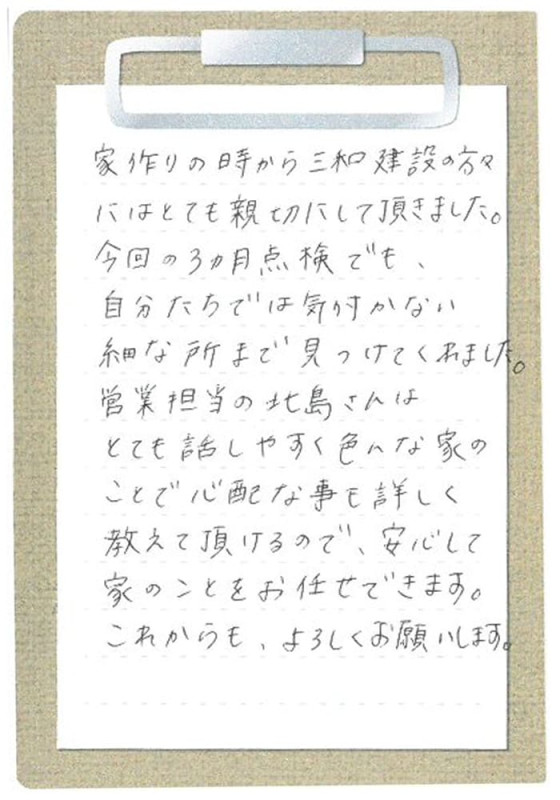 家作りの時から三和建設の方々
にはとても親切にして頂きました。
今回の3ヵ月点検でも、
自分たちでは気付かない
細な所まで見つけてくれました。
営業担当の北島さんは
とても話しやすく色んな家の
ことで心配な事も詳しく
教えて頂けるので、安心して
家のことをお任せできます。
これからも、よろしくお願いします。